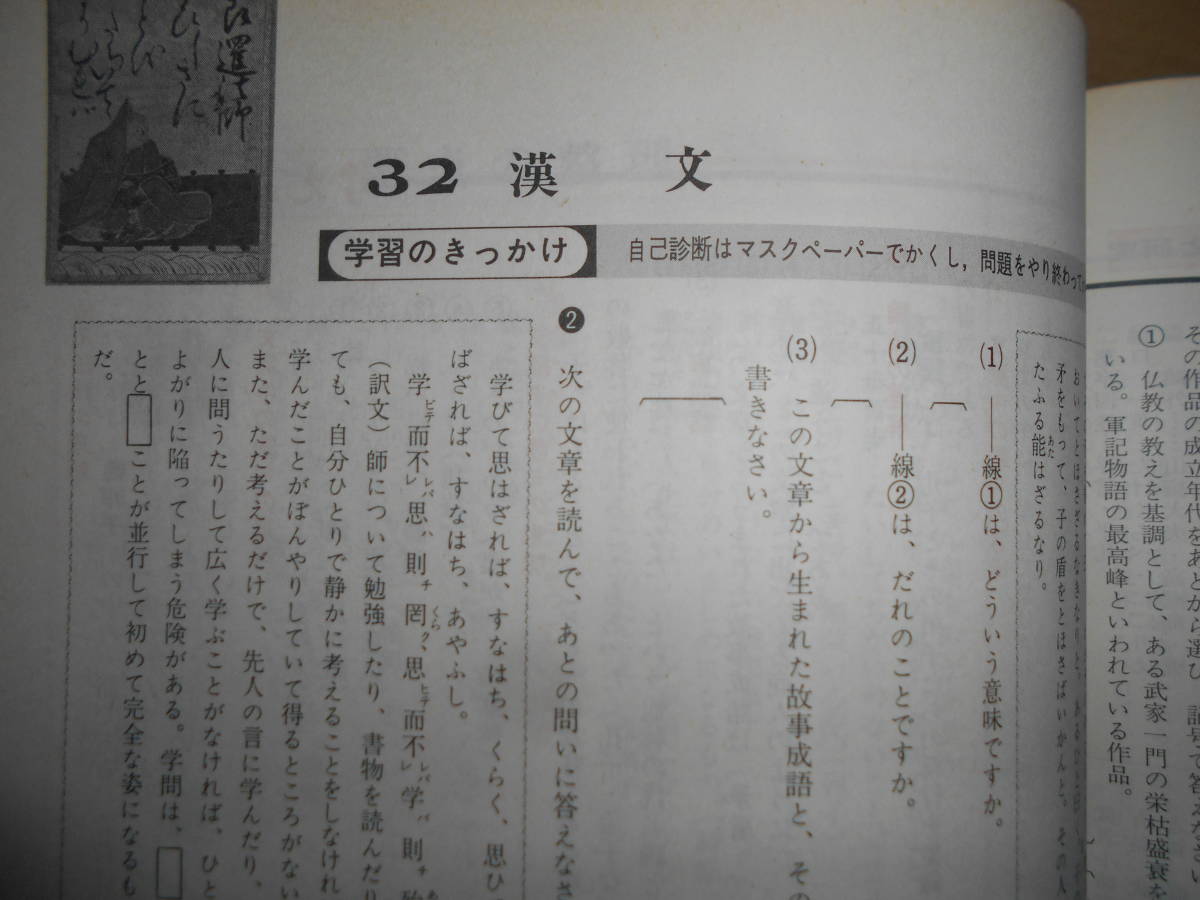 32 漢文
学習のきっかけ
自己診断はマスクペーパーでかくし，問題をやり終わって
その作品の成立年代をあとから選び
① 仏教の教えを基調として、ある武家一門の栄枯盛衰を
いる。軍記物語の最高峰といわれている作品。
矛をもって、子の盾をとほさばいかんと。その人
たふる能はざるなり。
(1) ――線①は、どういう意味ですか。
(2) ――線②は、だれのことですか。
(3) この文章から生まれた故事成語と、その
書きなさい。
❷ 次の文章を読んで、あとの問いに答えなさ
学びて思はざれば、すなはち、くらく、思ひ
ばざれば、すなはち、あやふし。
学ビテ而不レ思レバハ、則チ罔くらク、思ヒテ而不レ学レババ、則チ殆
（訳文）師について勉強したり、書物を読んだり
ても、自分ひとりで静かに考えることをしなけれ
学んだことがぼんやりしていて得るところがない
また、ただ考えるだけで、先人の言に学んだり、
人に問うたりして広く学ぶことがなければ、ひと
よがりに陥ってしまう危険がある。学問は、□
とと□ことが並行して初めて完全な姿になるも
だ。